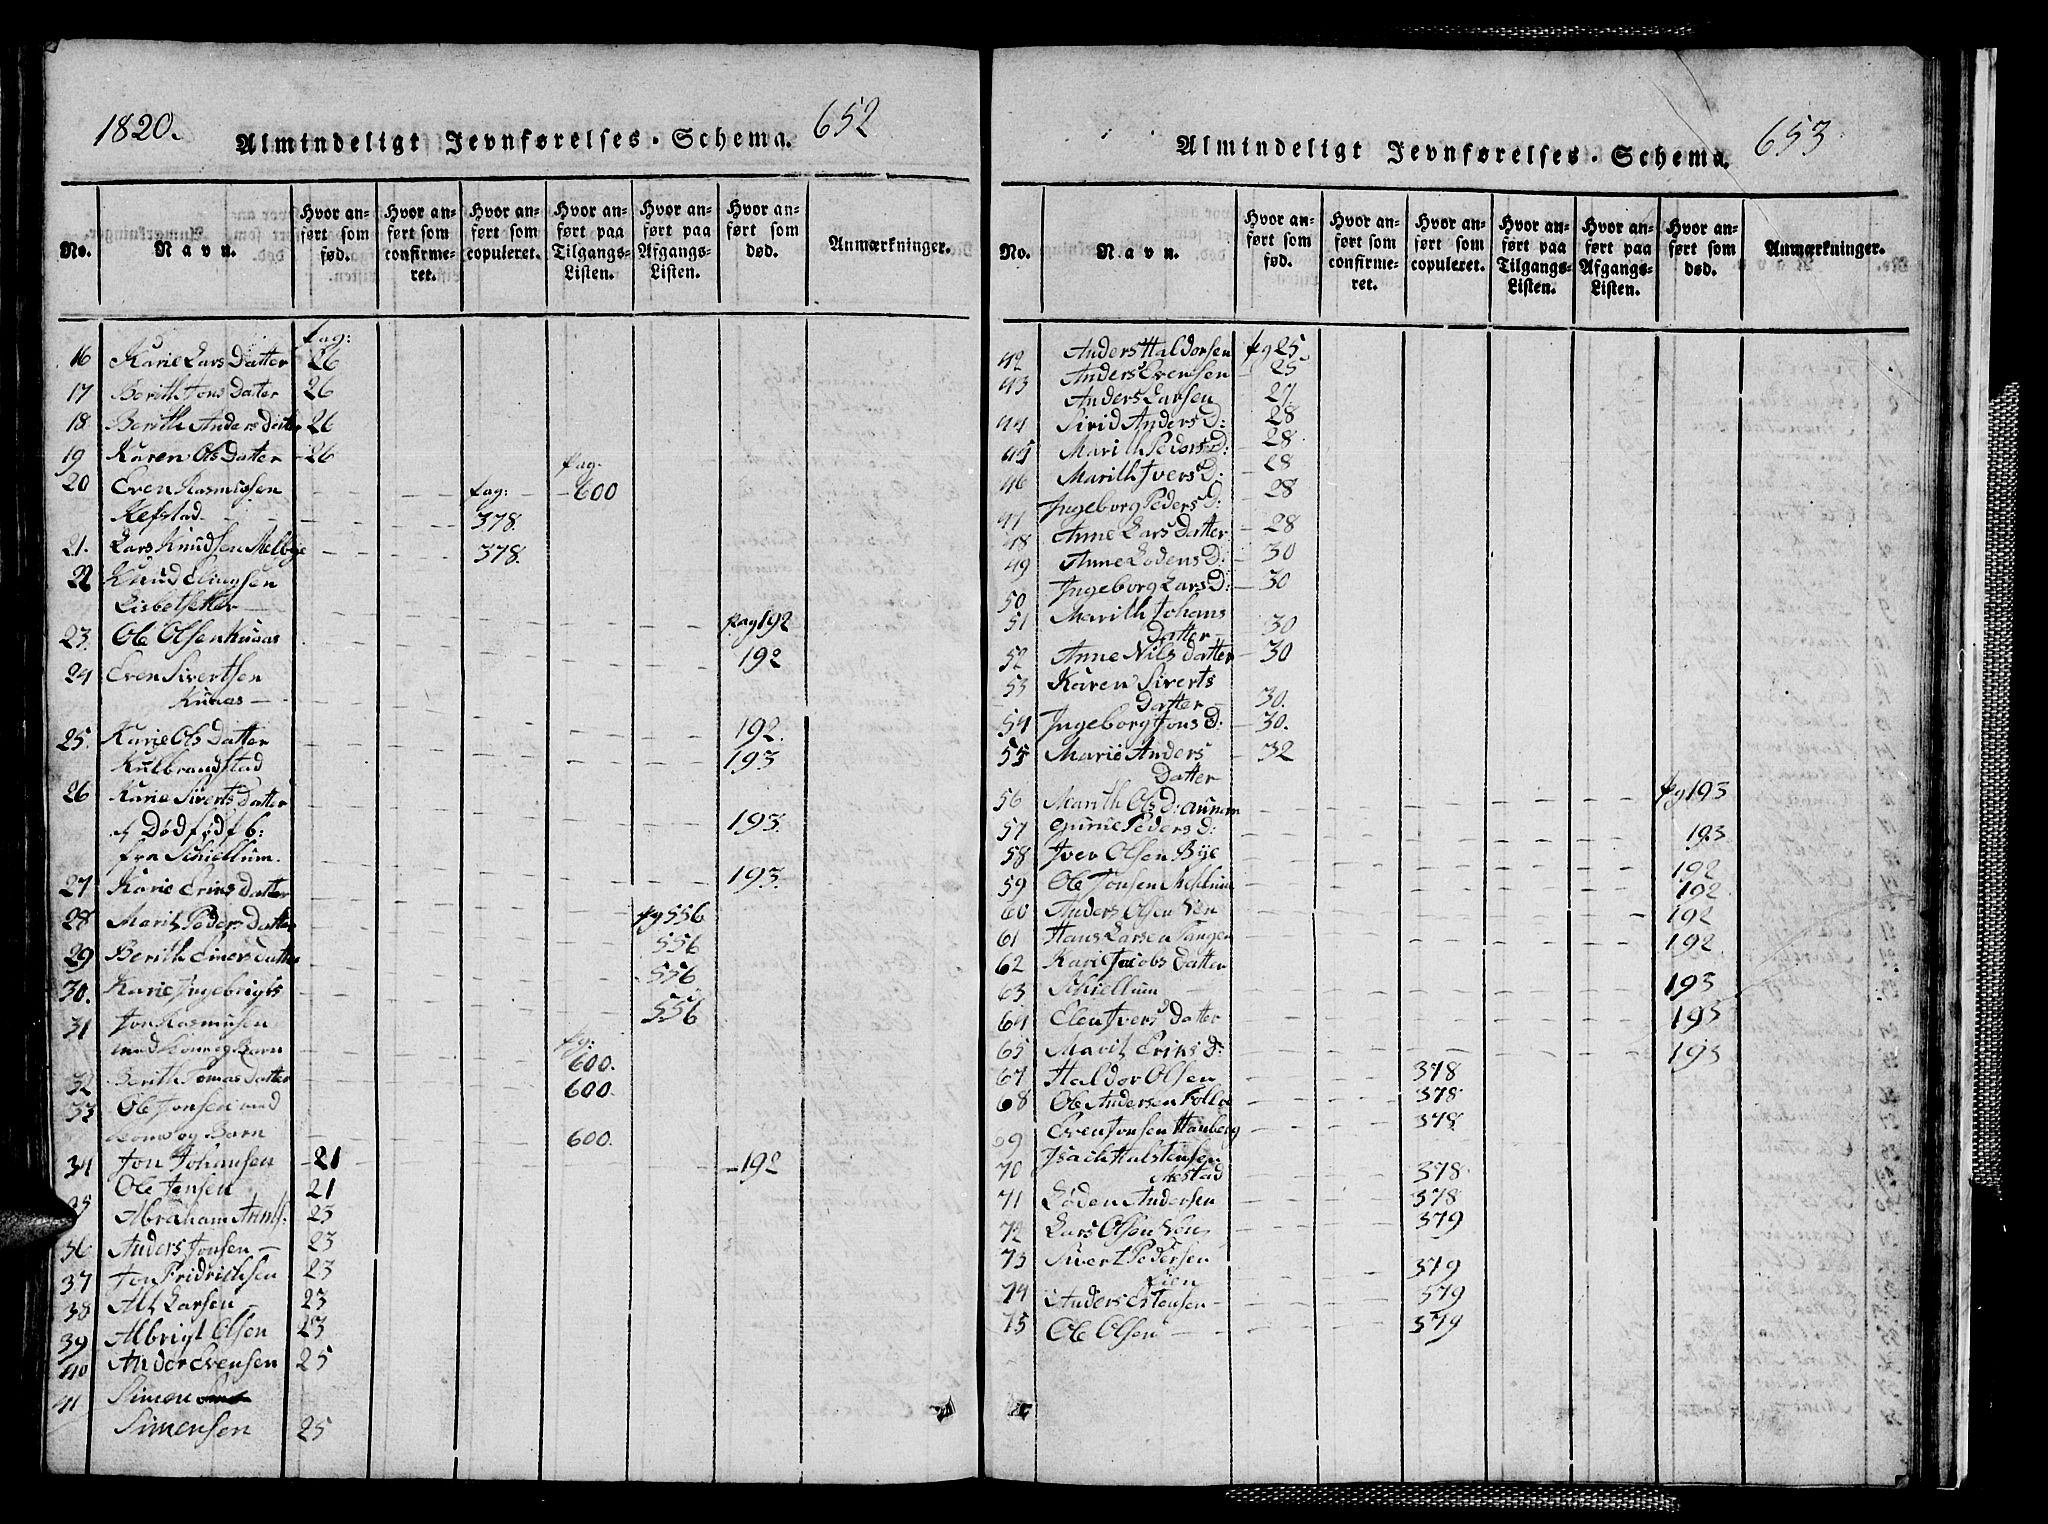 1820.
Almindeligt Jevnførelses-Schema.
652
No.
Navn.
Hvor anført som fød.
Hvor anført som confirmeret.
Hvor anført som copuleret.
Hvor anført paa Tilgangs-Listen.
Hvor anført paa Afgangs-Listen.
Hvor anført som død.
Anmærkninger.
pag:
16 Karie Lars Datter 26
17 Berith Jons Datter 26
18 Berith Anders Datter 26
19 Karen Ols Datter 26
pag.
20 Even Rasmussen pag: 600
Refstad 378.
21. Lars Knudsen Melbye 378.
22 Knud Elingsen
Lisbetsetter
pag 192
23. Ole Olsen Kunas
192
24 Even Sivertsen
Kunas
192.
25. Karie Ols Datter
Kulbrandstad 193
26 Karie Siverts Datter
Dødfødf b: 193.
fra Schiellum.
27 Karie Erins Datter 193.
28 Marit Peders Datter pg 556
29 Berith Einers Datter 556
30. Karie Ingebrigts 556
31 Jon Rasmusen 556
med Kone og Barn pg:
600.
32 Berith Tomas Datter 600.
33 Ole Jonsen med
Kone og Barn 600.
34 Jon Johansen 21 192
Ole Jensen 21
35 Abraham 23
36 Anders Jonsen 23
37 Jon Fridrichsen 23
38 Alf Larsen 23
39 Albrigt Olsen 23
40 Ander Evensen 25
41 Simen
Simensen 25
Almindeligt Jevnførelses-Schema.
653
No.
Navn.
Hvor anført som fød.
Hvor anført som confirmeret.
Hvor anført som copuleret.
Hvor anført paa Tilgangs-Listen.
Hvor anført paa Afgangs-Listen.
Hvor anført som død.
Anmærkninger.
42 Anders Haldorsen pg 25
43 Anders Evensen 25
Anders Larsen 27
44 Sirid Anders D: 28
45 Marith Peders D: 28
46 Marith Ivers D: 28
47 Ingeborg Peders D: 28
48 Anne Lars Datter 28
49 Anne Lodens D: 30
50 Ingeborg Lars D: 30
51 Marith Johans
Datter 30
52 Anne Nils Datter 30
53 Karen Siverts
Datter 30.
54 Ingeborg Jons D: 30.
55 Marie Anders 32
Datter
56 Marith Ols D: Aunan pg 193
57 Gurue Peders D: 193
58 Iver Olsen Bye 192
59 Ole Jonsen 192
60 Anders Olsen Ven 192
61 Hans Larsen Tangen 192
62 Kari Jacobs Datter
63 Schiellum 193
64 Elen Ivers Datter 193
65 Marit Eriks D: 193
67 Haldor Olsen 378
68 Ole Andersen Folloe 378
69 Even Jonsen Hauberg 378
70 Isach Halstensen
Mestad 378
71 Løden Andersen 378
72 Lars Olsen Ven 379
73 Sivert Pedersen
Lien 379
74 Anders Estensen 379
75 Ole Olsen 379